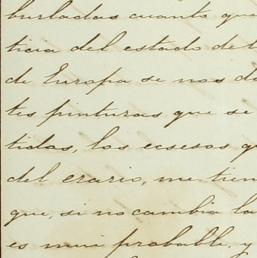 burladas cuanto que
ticia del estado de l
de Europa se nos d
tes pinturas que se
tidas, los ecsesos q
del erario, me tien
que, si no cambia la
es mui probable, y